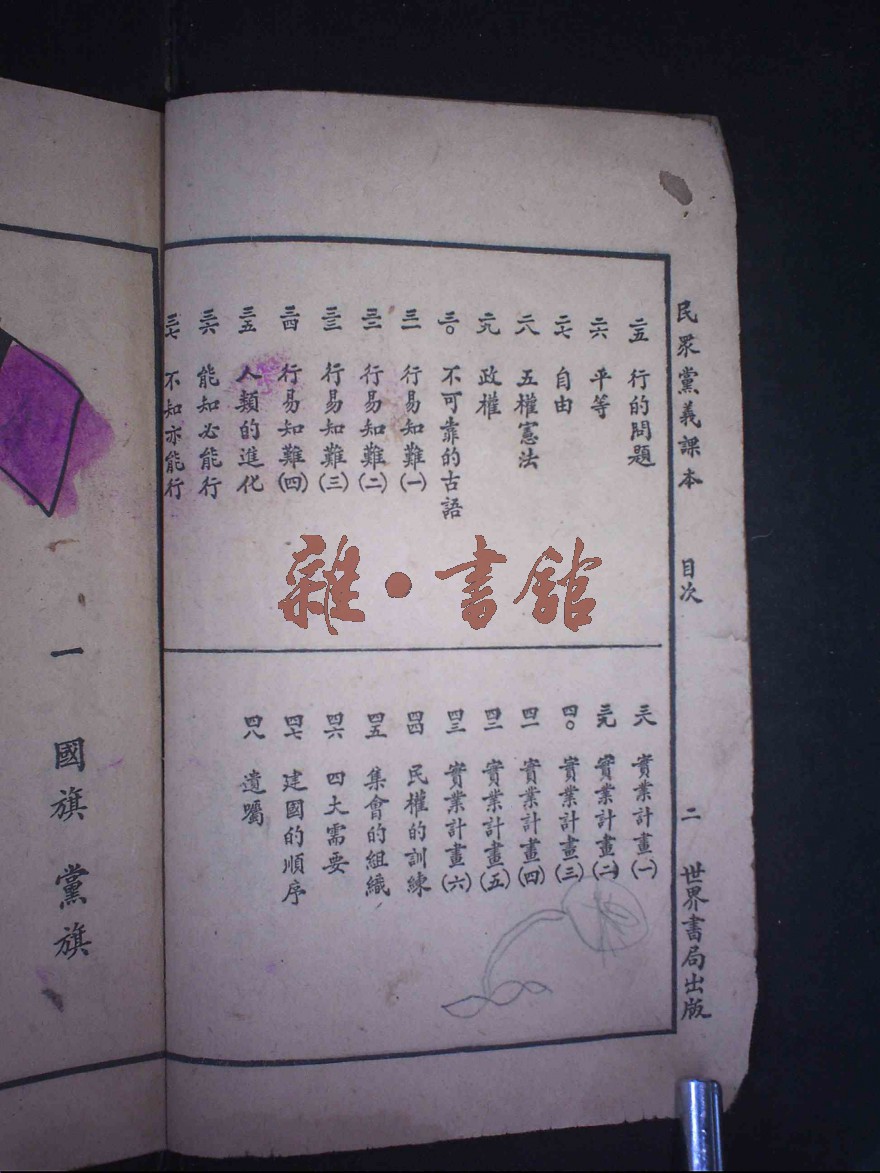 民眾黨義課本 目次 二 世界書局出版
二五 行的問題
二六 平等
二七 自由
二八 五權憲法
二九 政權
三〇 不可靠的古語
三一 行易知難(一)
三二 行易知難(二)
三三 行易知難(三)
三四 行易知難(四)
三五 人類的進化
三六 能知必能行
三七 不知亦能行
三八 實業計畫(一)
三九 實業計畫(二)
四〇 實業計畫(三)
四一 實業計畫(四)
四二 實業計畫(五)
四三 實業計畫(六)
四四 民權的訓練
四五 集會的組織
四六 四大需要
四七 建國的順序
四八 遺囑
雜·書館
一 國旗 黨旗